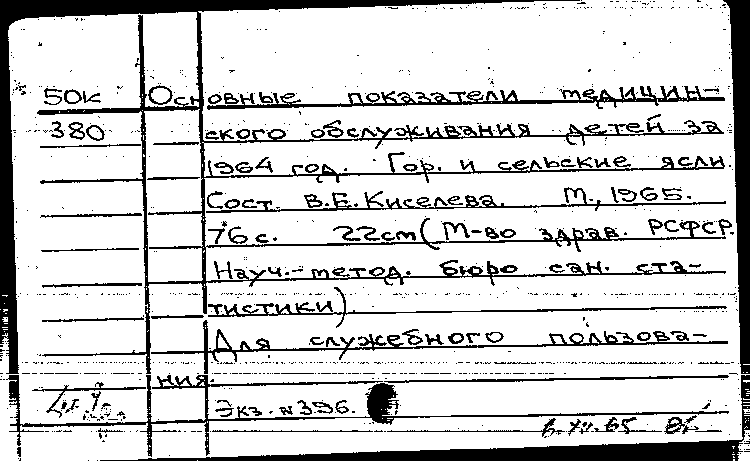 50к Основные показатели медицин-
380 ского обслуживания детей за
1964 год. Гор. и сельские ясли.
Сост. В.Е. Киселева. М., 1965.
76 с. 22см (М-во здрав. РСФСР.
Науч.-метод. бюро сан. ста-
тистики).
Для служебного пользова-
ния.
Экз. №396.
6.XII.65